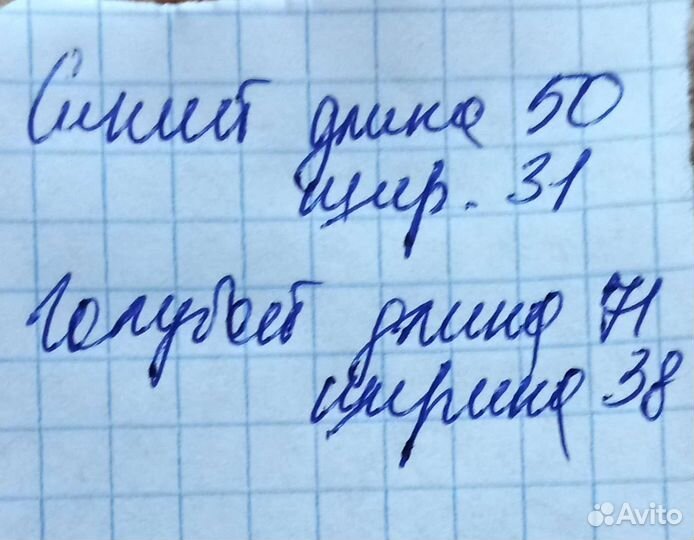 Синий длина 50
шир. 31
Голубой длина 71
ширина 38
Avito